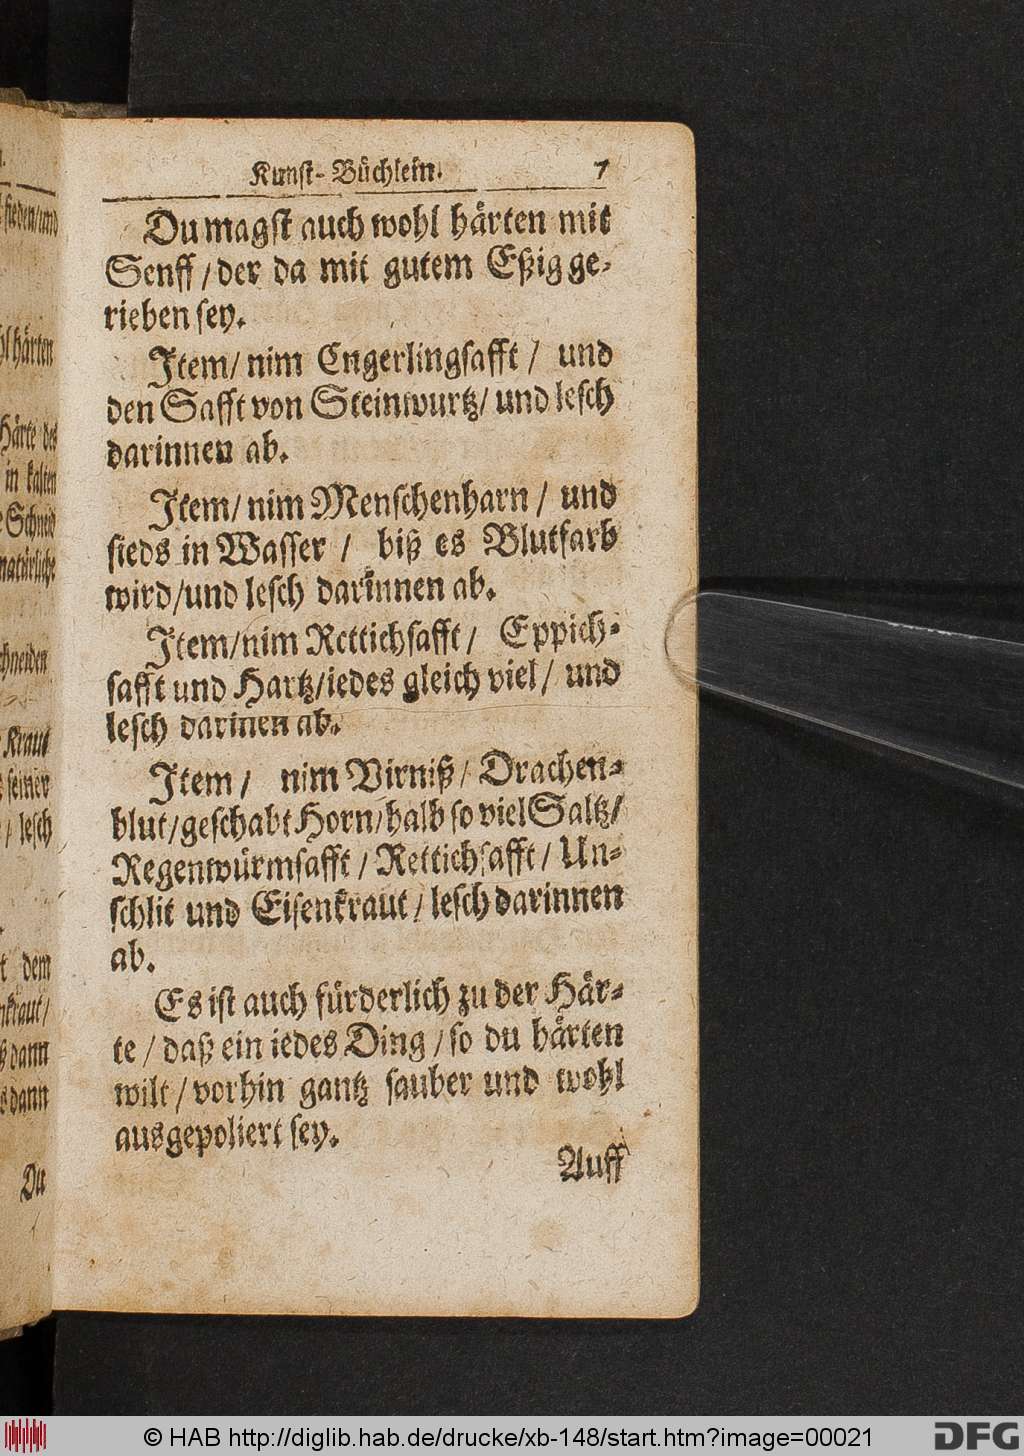 Kunst-Büchlein. 7
Du magst auch wohl härten mit
Senff / der da mit gutem Eßig ge-
rieben sey.
Item / nim Engerlingsafft / und
den Safft von Steinwurtz / und lesch
darinnen ab.
Item / nim Menschenharn / und
sieds in Wasser / biß es Blutfarb
wird / und lesch darinnen ab.
Item / nim Rettichsafft / Eppich-
safft und Hartz / iedes gleich viel / und
lesch darinen ab.
Item / nim Virniß / Drachen-
blut / geschabt Horn / halb so viel Saltz /
Regenwürmsafft / Rettichsafft / Un-
schlit und Eisenkraut / lesch darinnen
ab.
Es ist auch fürderlich zu der Här-
te / daß ein iedes Ding / so du härten
wilt / vorhin gantz sauber und wohl
ausgepoliert sey.
Auff
sieden / und
härten
Härte des
in kalten
Schneid
natürliche
Kraut
seiner
/ lesch
dem
dann
dann
Du
© HAB http://diglib.hab.de/drucke/xb-148/start.htm?image=00021
DFG